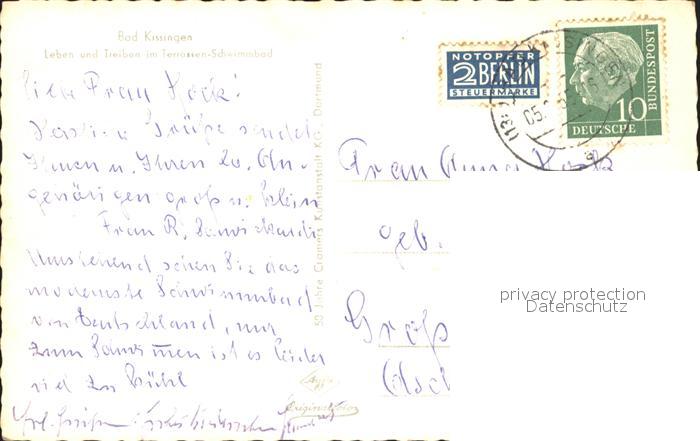 Bad Kissingen
Leben und Treiben im Terrassen-Schwimmbad
NOTOPFER
2 BERLIN
STEUERMARKE
10
DEUTSCHE
BUNDESPOST
Liebe Frau Kock!
Herzliche Grüße sendet
Ihnen u. Ihren lb. An-
gehörigen groß u. klein
Frau R.
Umstehend sehen Sie das
modernste Schwimmbad
von Deutschland, nur
zum Schwimmen ist es leider
viel zu kühl
50 Jahre Cramers Kunstanstalt KG., Dortmund
Frau Anna Kock
geb.
Groß
privacy protection
Datenschutz